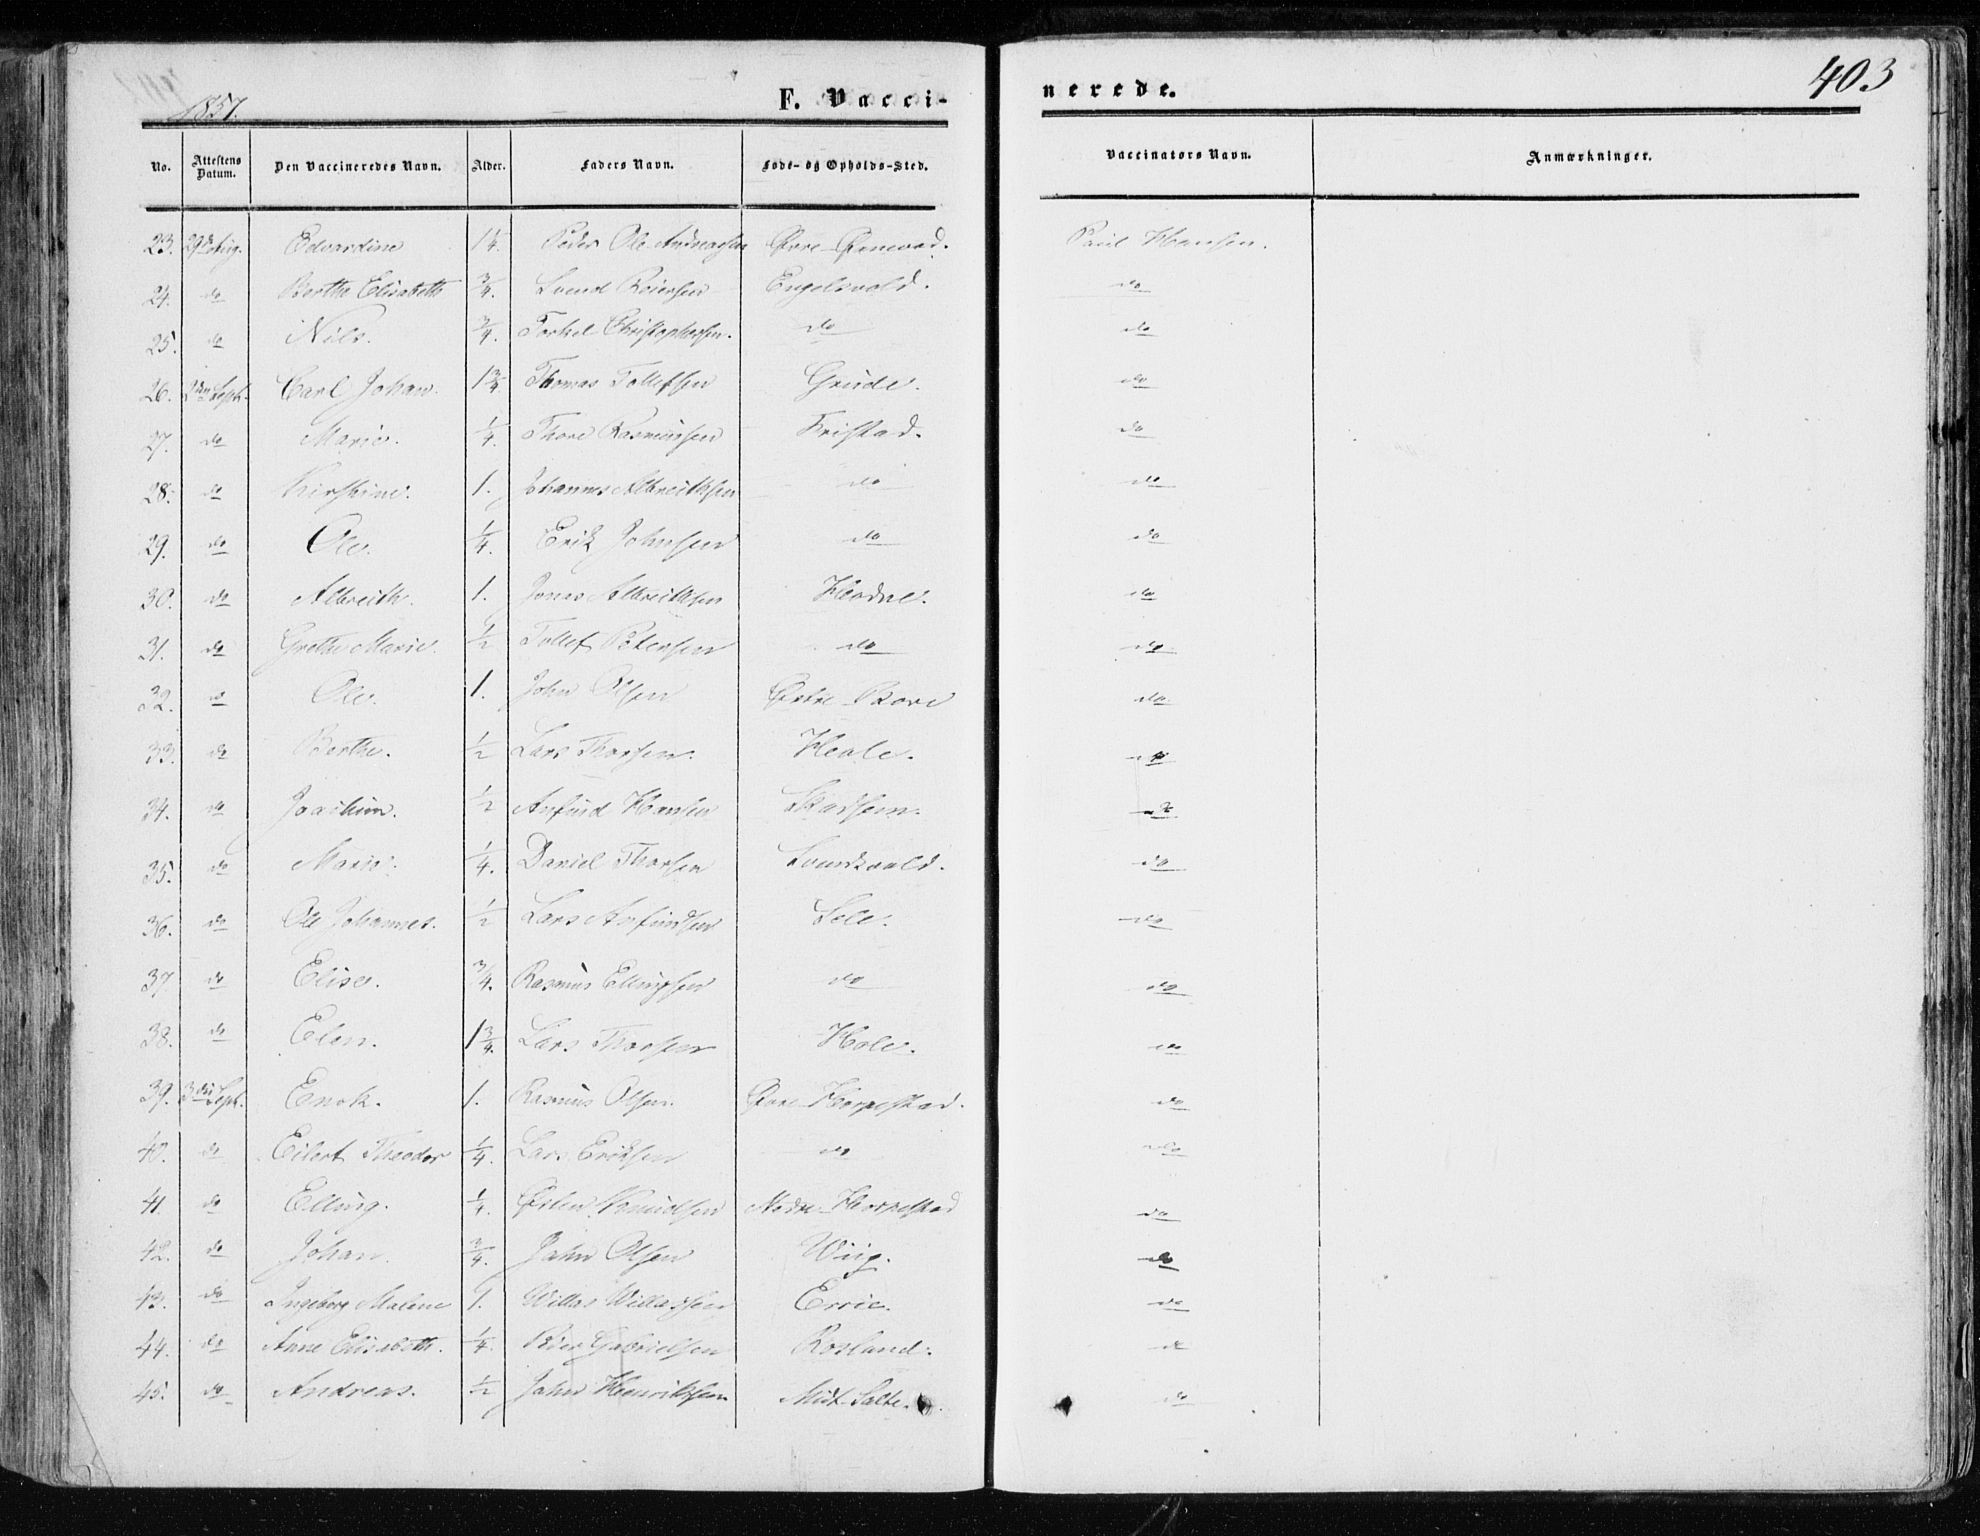 403
1857.
F. Vacci-nerede.
No. Attestens Datum. Den Vaccineredes Navn. Alder. Faders Navn. Føde- og Opholds-Sted. Vaccinators Navn. Anmærkninger.
23. 29de Aug. Edvardine 1 1/4. Peder Ole Andreassen Øvre Paul Hansen.
24. do Berthe Elisabeth 3/4. Svend Reiersen Engelsvold. do
25. do Nils. 3/4. Torkel Christophersen. do do
26. 2den Septr. Carl Johan. 1 3/4. Thomas Tollefsen Grude. do
27. do Marie. 1/4. Thore Rasmussen Fristad. do
28. do Kirstine. 1. Johannes Albreithsen do do
29. do Ole. 1/4. Erik Johnsen do do
30. do Albreith. 1. Jonas Albreithsen Hodne. do
31. do Grethe Marie. 1/2 Tollef Petersen do do
32. do Ole. 1. John Olsen Østre Bore do
33. do Berthe. 1/2 Lars Thorsen. do
34. do Joachim. 1/2 Anfind Hansen Skadsem. do
35. do Marie. 1/4. Daniel Thorsen do
36. do Ole Johannes. 1/2 Lars Anfindsen Sele. do
37 do Elise. 3/4. Rasmus Ellingsen do do
38. do Elen. 1 3/4. Lars Thorsen Hole. do
39. 3die Septr. Enok. 1. Rasmus Olsen. Øvre Horpestad. do
40. do Eilert Theodor 1/4. Lars Eriksen do do
41. do Elling. 1/4. Østen Knudsen Nedre Horpestad do
42. do Johan. 3/4. Jahn Olsen Wiig. do
43. do Ingeborg Malene 1. Willas Willassen Errie. do
44. do Anne Elisabeth. 1/4. Peder Gabrielsen Rosland. do
45. do Andreas. 1/2 Jahn Henriksen. Mit Salte. do